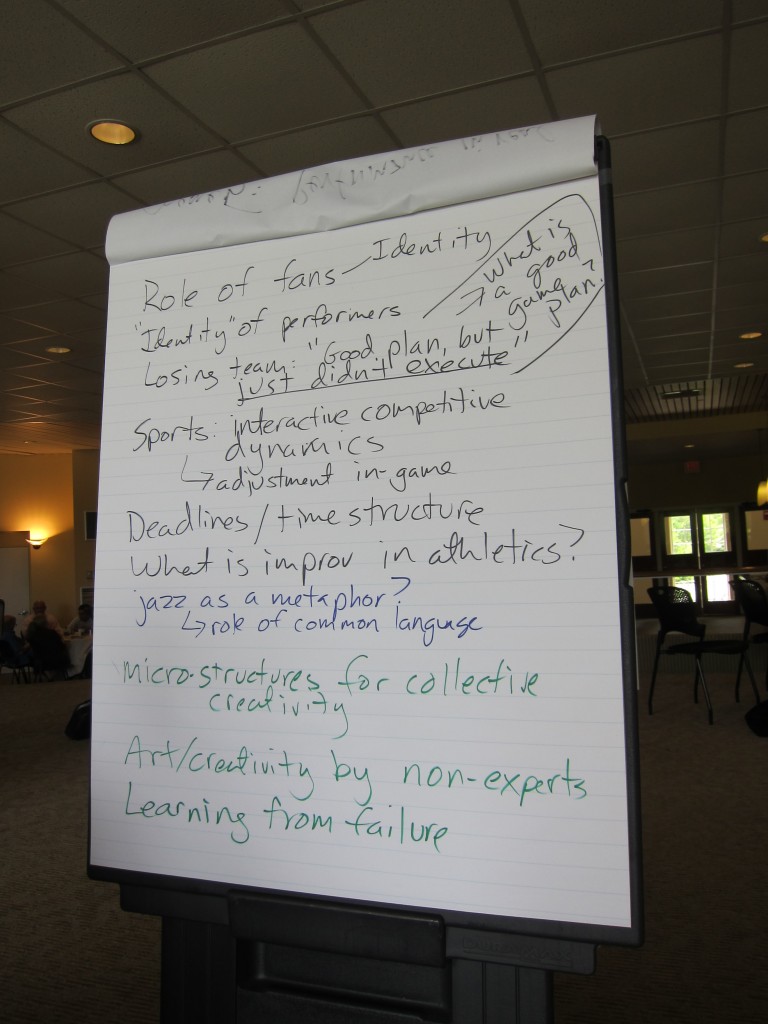 Role of fans - Identity
"Identity" of performers
Losing team: "Good plan, but
just didn't execute"
→ What is
a good
game
plan?
Sports: interactive competitive
dynamics
↳ adjustment in-game
Deadlines/time structure
What is improv in athletics?
jazz as a metaphor?
↳ role of common language
Micro-structures for collective
creativity
Art/creativity by non-experts
Learning from failure